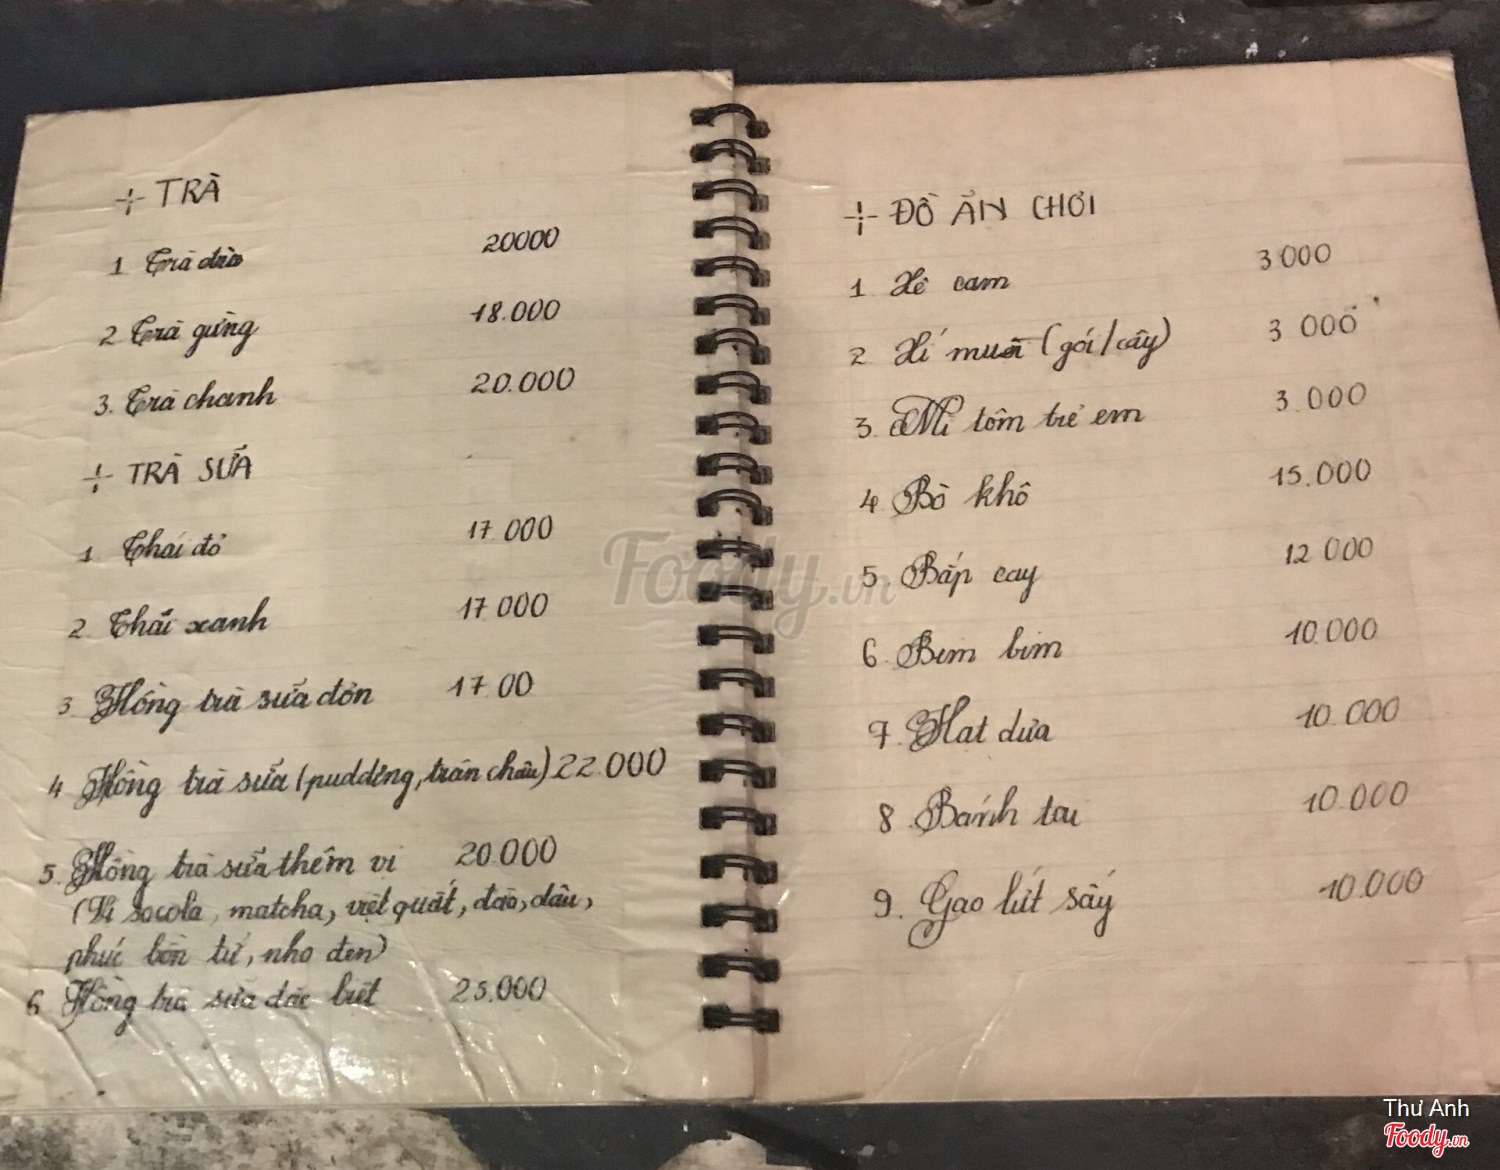 + TRÀ
1 Trà đào 20000
2 Trà gừng 18.000
3. Trà chanh 20.000
+ TRÀ SỮA
1 Thái đỏ 17 000
2 Thái xanh 17 000
3 Hồng trà sữa đơn 17 00
4 Hồng trà sữa (pudding, trân châu) 22.000
5. Hồng trà sữa thêm vị 20.000
(Vị socola, matcha, việt quất, đào, dâu,
phúc bồn tử, nho đen)
6 Hồng trà sữa đặc biệt 25.000
+ ĐỒ ĂN CHƠI
1 Xê cam 3 000
2 Xí muội (gói/cây) 3 000
3. Mì tôm trẻ em 3.000
4 Bò khô 15.000
5 Bắp cay 12 000
6. Bim bim 10.000
7. Hat dưa 10.000
8. Bánh tai 10.000
9. Gạo lứt sấy 10.000
Foody.vn
Thư Anh
Foody.vn